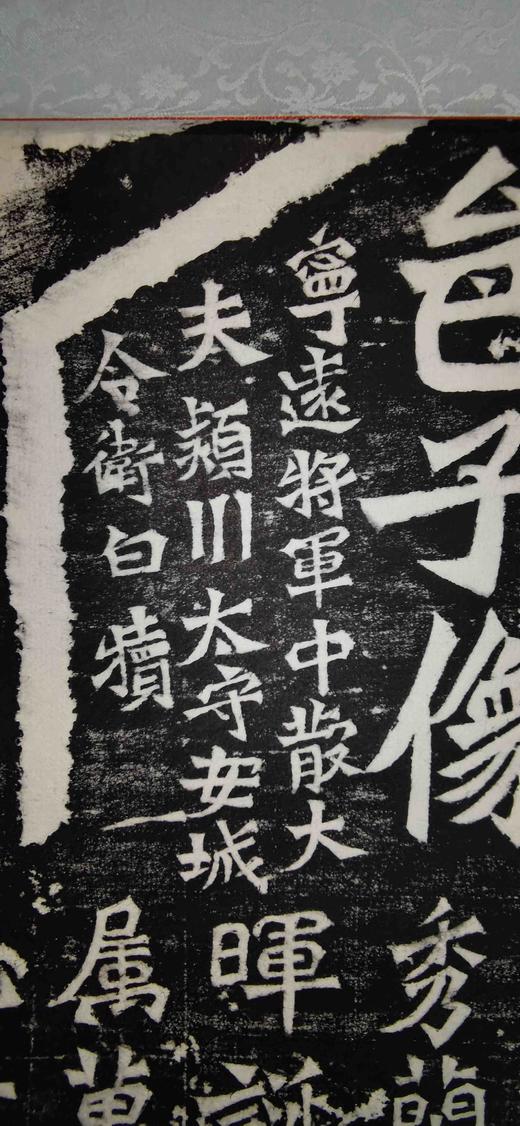 邑子像
寧遠將軍中散大
夫潁川太守安城
令衛白犢
秀
暉
属
萬